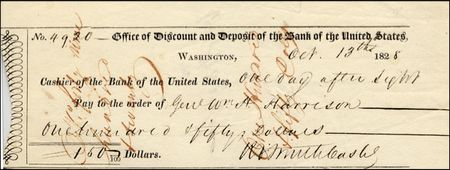 No. 4920 — Office of Discount and Deposit of the Bank of the United States,
Washington, Oct. 13th 1828
Cashier of the Bank of the United States, One day after sight
Pay to the order of Genl. Wm. H. Harrison
One hundred & fifty Dollars
150 / 100 Dollars. Smith Cashr